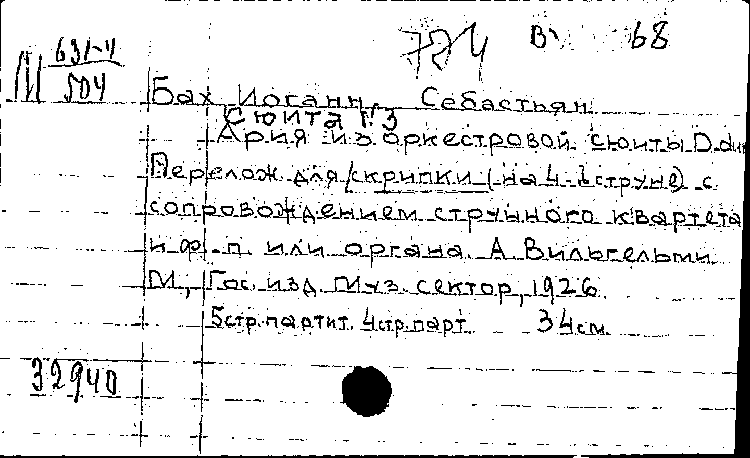 724 В 68
М 631-4
504
Бах, Иоганн, Себастьян.
Сюита №3
Ария из оркестровой сюиты D.dur
Перелож. для скрипки (на 4-й струне) с
сопровождением струнного квартета
и ф.-п. или органа. А. Вильгельми.
М., Гос. изд. Муз. сектор, 1926.
5стр.партит. 4стр.парт. 34см.
32940